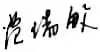 范瑞敏